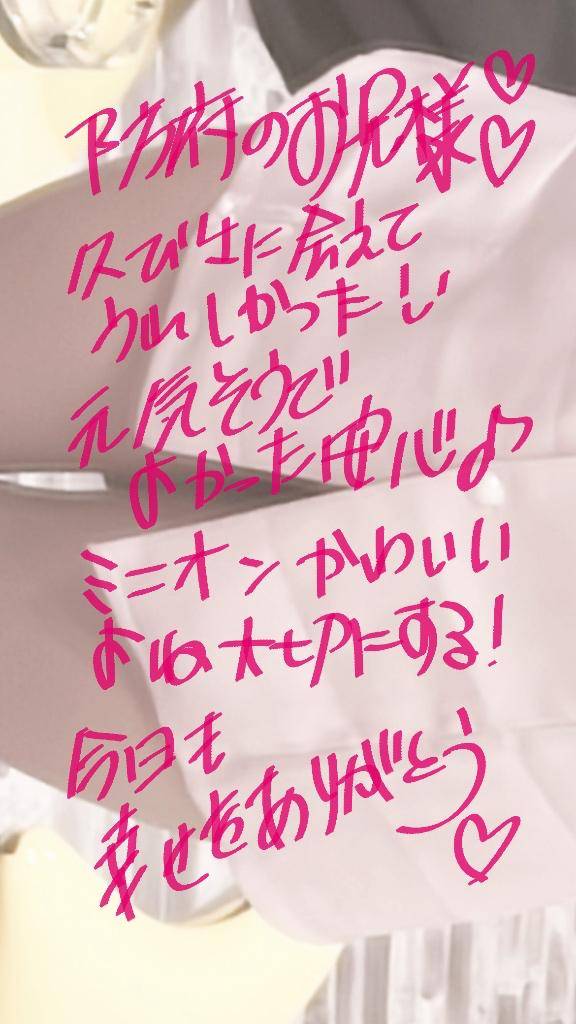 防府のお兄様♡♡
久び
に会えて
うれしかったし
元気そうで
よかった安心♪
ミニオンかわいい
よね大切にする!
今日も
幸せをありがとう♡